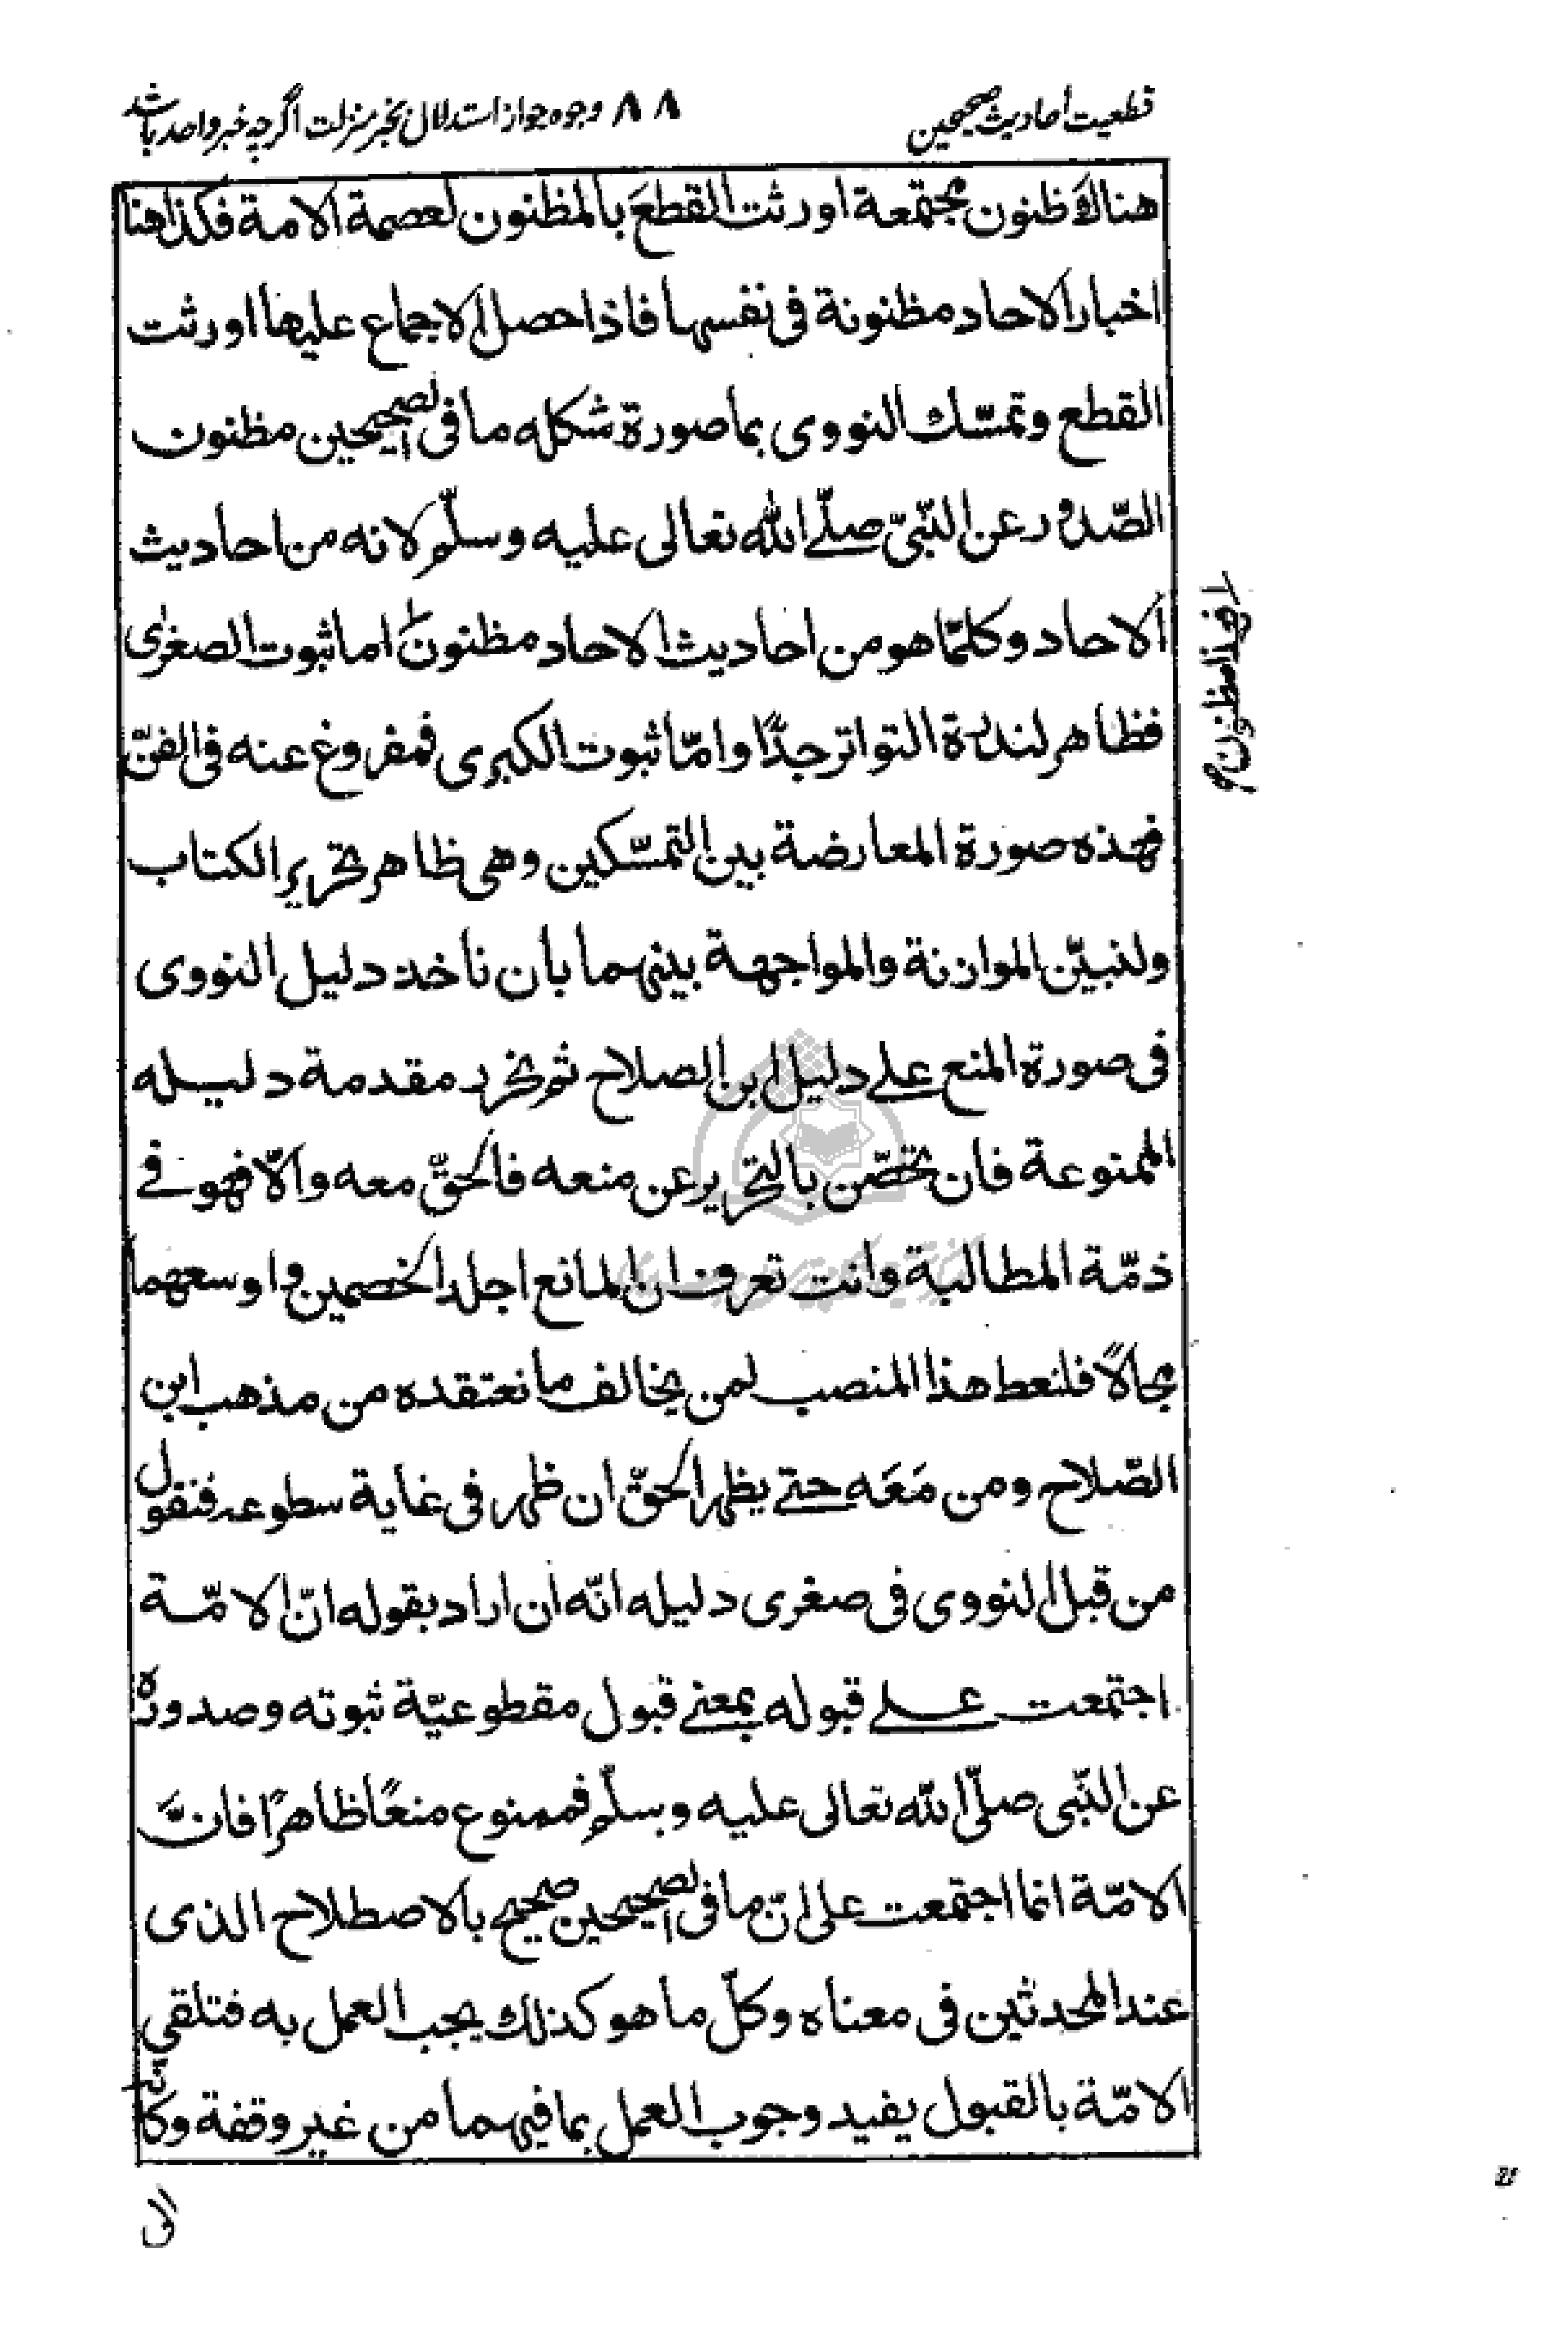 قطعیت أحادیث صحیحین ۸۸ وجوه جواز استدلال بخبر منزلت اگرچه خبر واحد باشد
هناك ظنون مجتمعة اورثت القطعَ بالمظنون لعصمة الامة فكذا هنا
اخبار الاحاد مظنونة فی نفسها فاذا حصل الاجماع علیها اورثت
القطع وتمسّك النووی بما صورة شکله ما فی الصحیحین مظنون
الصّدور عن النّبیّ صلّے الله تعالی علیه وسلّم لانه من احادیث
الاحاد وکلّما هو من احادیث الاحاد مظنون اما ثبوت الصغرٰی
فظاهر لندرة التواتر جدًّا وامّا ثبوت الکبری فمفروغ عنه فی الفنّ
فهذه صورة المعارضة بین التمسّکین وهی ظاهر تحریر الکتاب
ولنبیّن الموازنة والمواجهة بینهما بان ناخذ دلیل النووی
فی صورة المنع علے دلیل ابن الصلاح ثم نحرر مقدمة دلیله
الممنوعة فان تحصّن بالتحریر عن منعه فالحقّ معه والّا فهو فے
ذمّة المطالبة وانت تعرف ان المانع اجلد الخصمین واوسعهما
مجالًا فلنعط هذا المنصب لمن یخالف ما نعتقده من مذهب ابن
الصّلاح ومن مَعَه حتے یظهر الحقّ ان ظهر فی غایة سطوعه فنقول
من قبل النووی فی صغری دلیله انّه ان اراد بقوله انّ الامّة
اجتمعت علے قبوله بمعنے قبول مقطوعیّة ثبوته وصدوره
عن النّبی صلّی الله تعالی علیه وسلّم فممنوع منعًا ظاهرًا فانّ
الامّة انما اجتمعت علی انّ ما فی الصحیحین صحیح بالاصطلاح الذی
عند المحدثین فی معناه وکلّ ما هو کذلك یجب العمل به فتلقی
الامّة بالقبول یفید وجوب العمل بما فیهما من غیر وقفة
الی